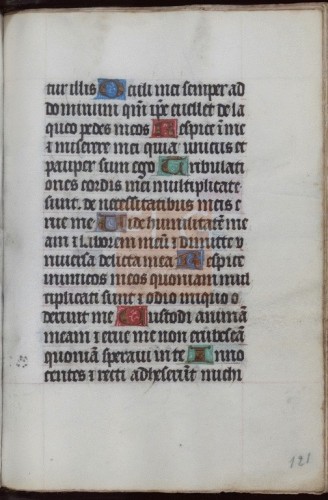 tur illis Oculi mei semper ad
dominum qm̄ ip̄e euellet de la
queo pedes meos Respice ī me
⁊ miserere mei quia vnicus et
pauper sum ego Tribulati
ones cordis mei multiplicate
sunt. de necessitatibus meis e
rue me Uide humilitatē me
am ⁊ laborem meū ⁊ dimitte v
niuersa delicta mea Respice
inimicos meos quoniam mul
tiplicati sunt ⁊ odio iniquo o
derunt me Custodi animam
meam ⁊ erue me non erubescā
quoniā speraui in te Inno
centes ⁊ recti adheserūt michi
121